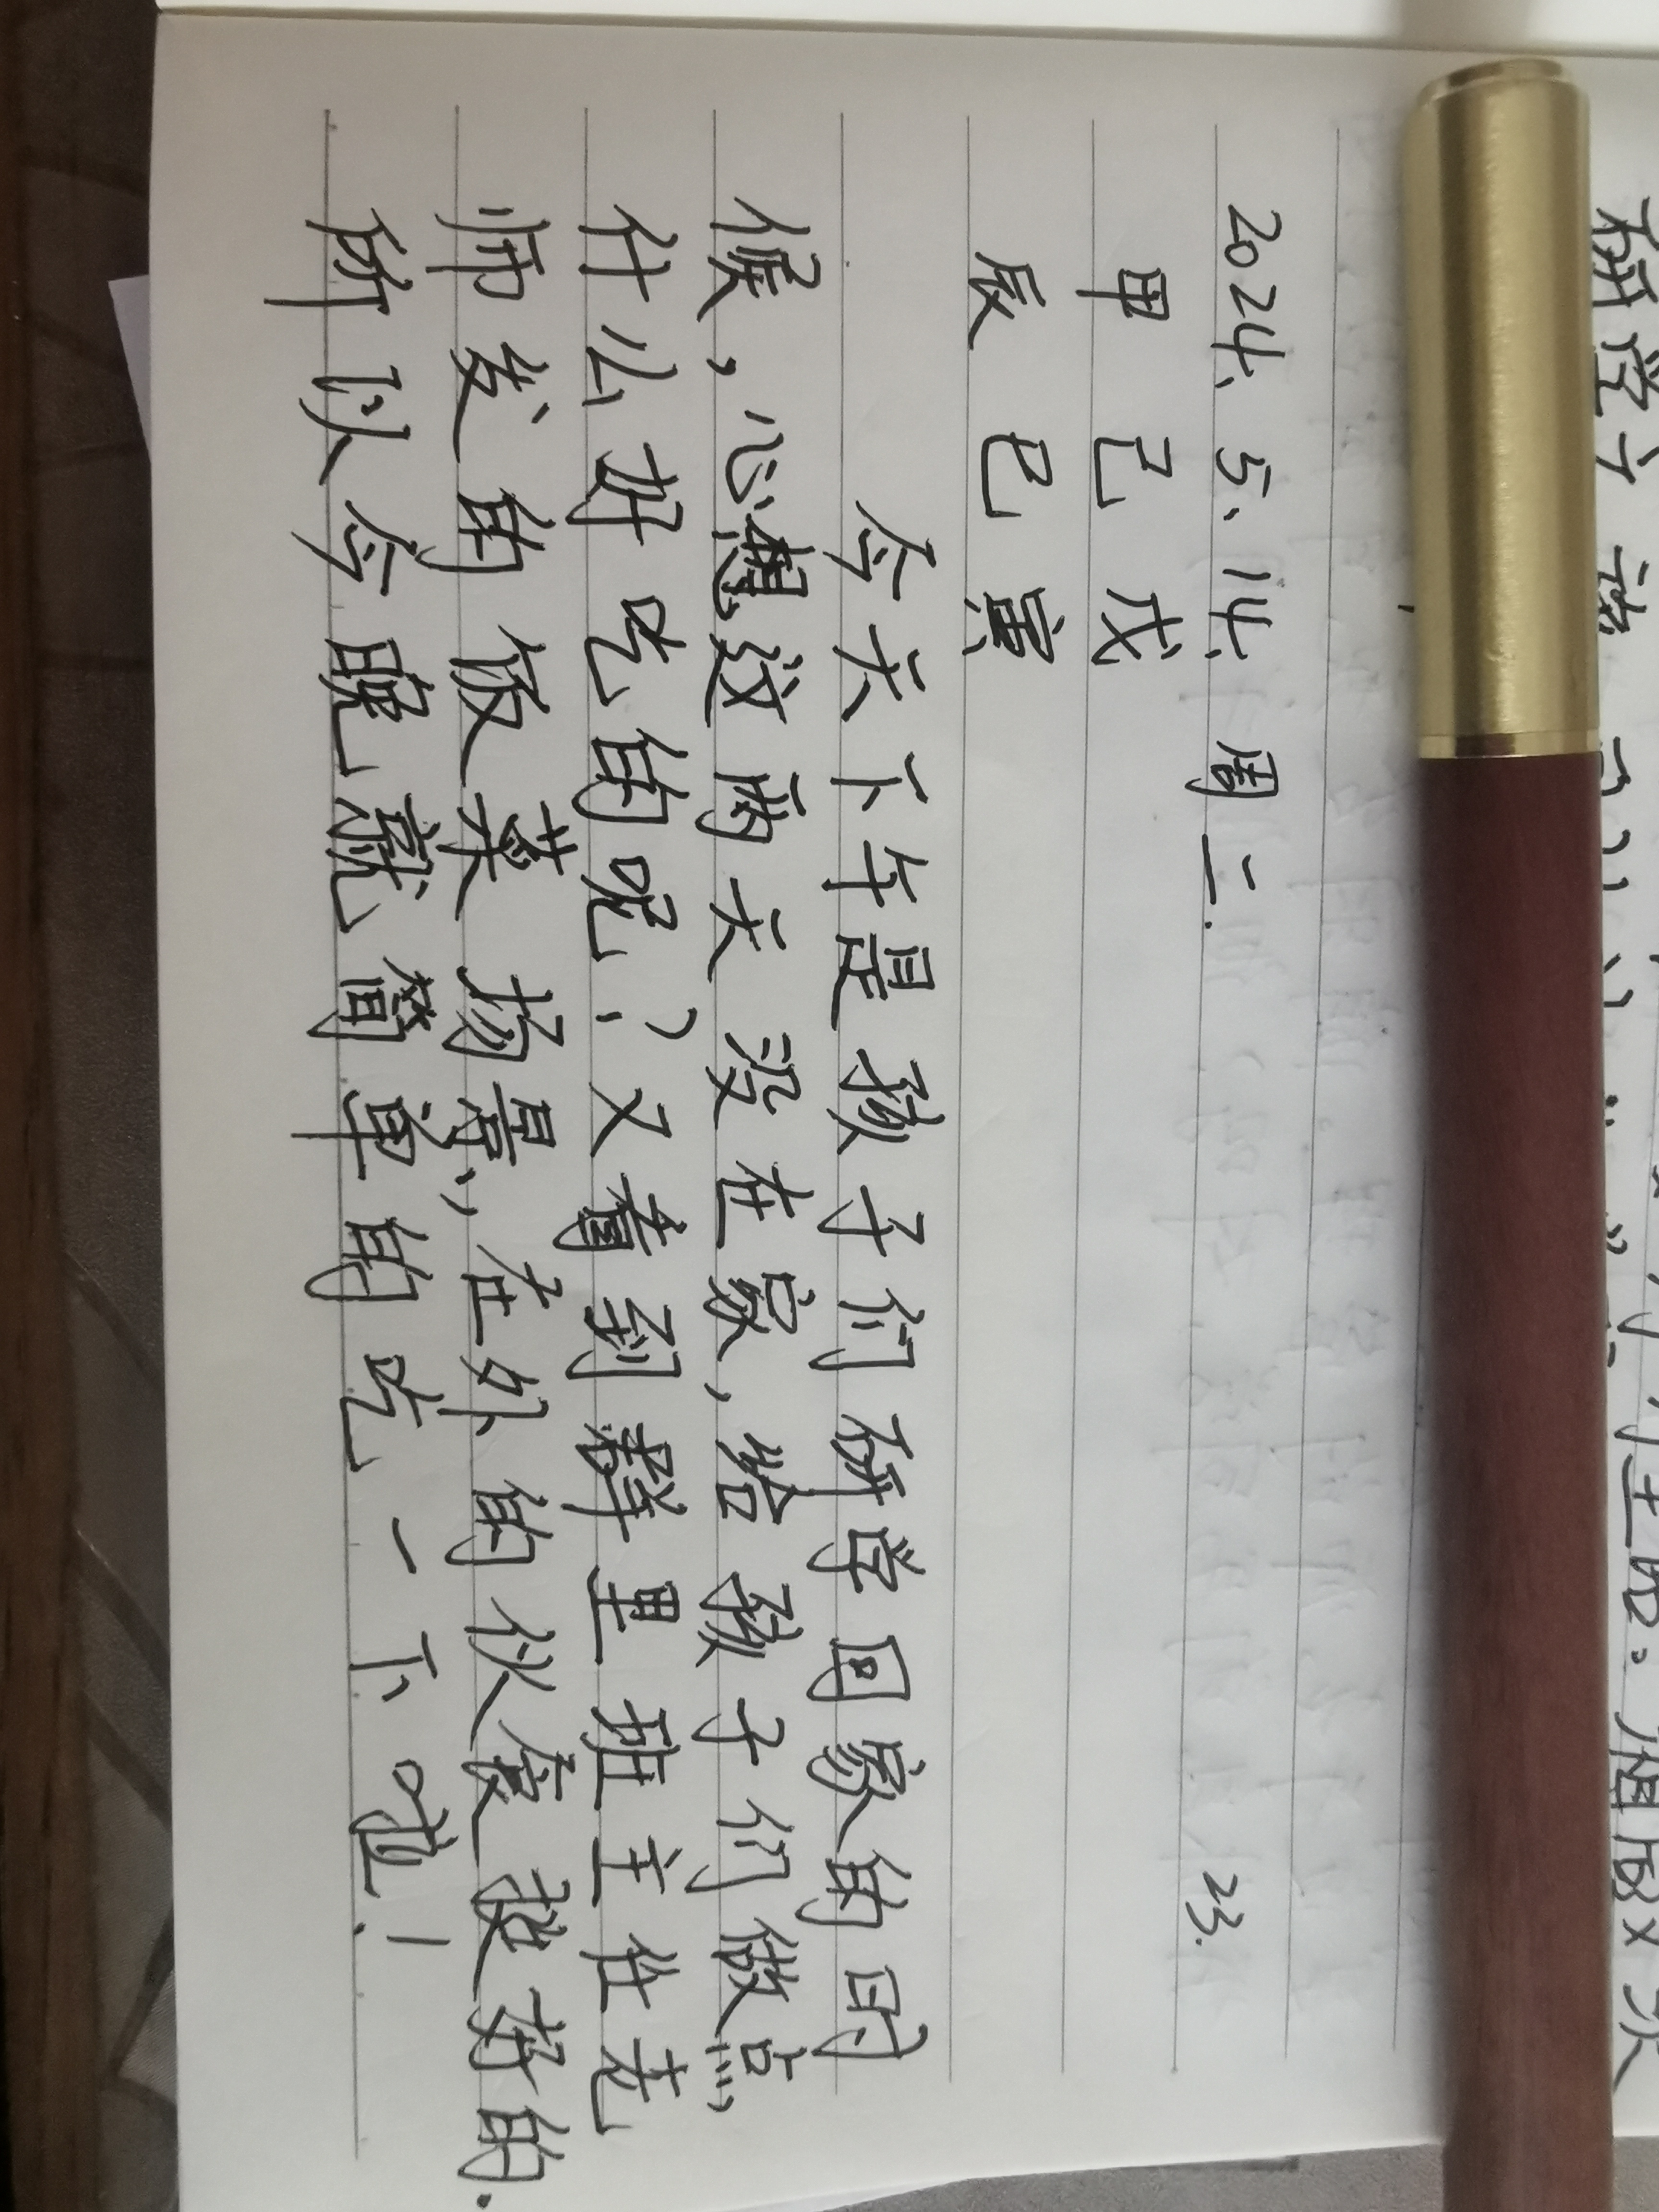 2024. 5. 14. 周二. 23.
甲 己 戊
辰 巳 寅
今天下午是孩子们研学回家的时
候,心想这两天没在家,给孩子们做点,
什么好吃的呢?又看到群里班主任老
师发的饭菜场景,在外的伙食挺好的.
所以今晚就简单的吃一下啦!